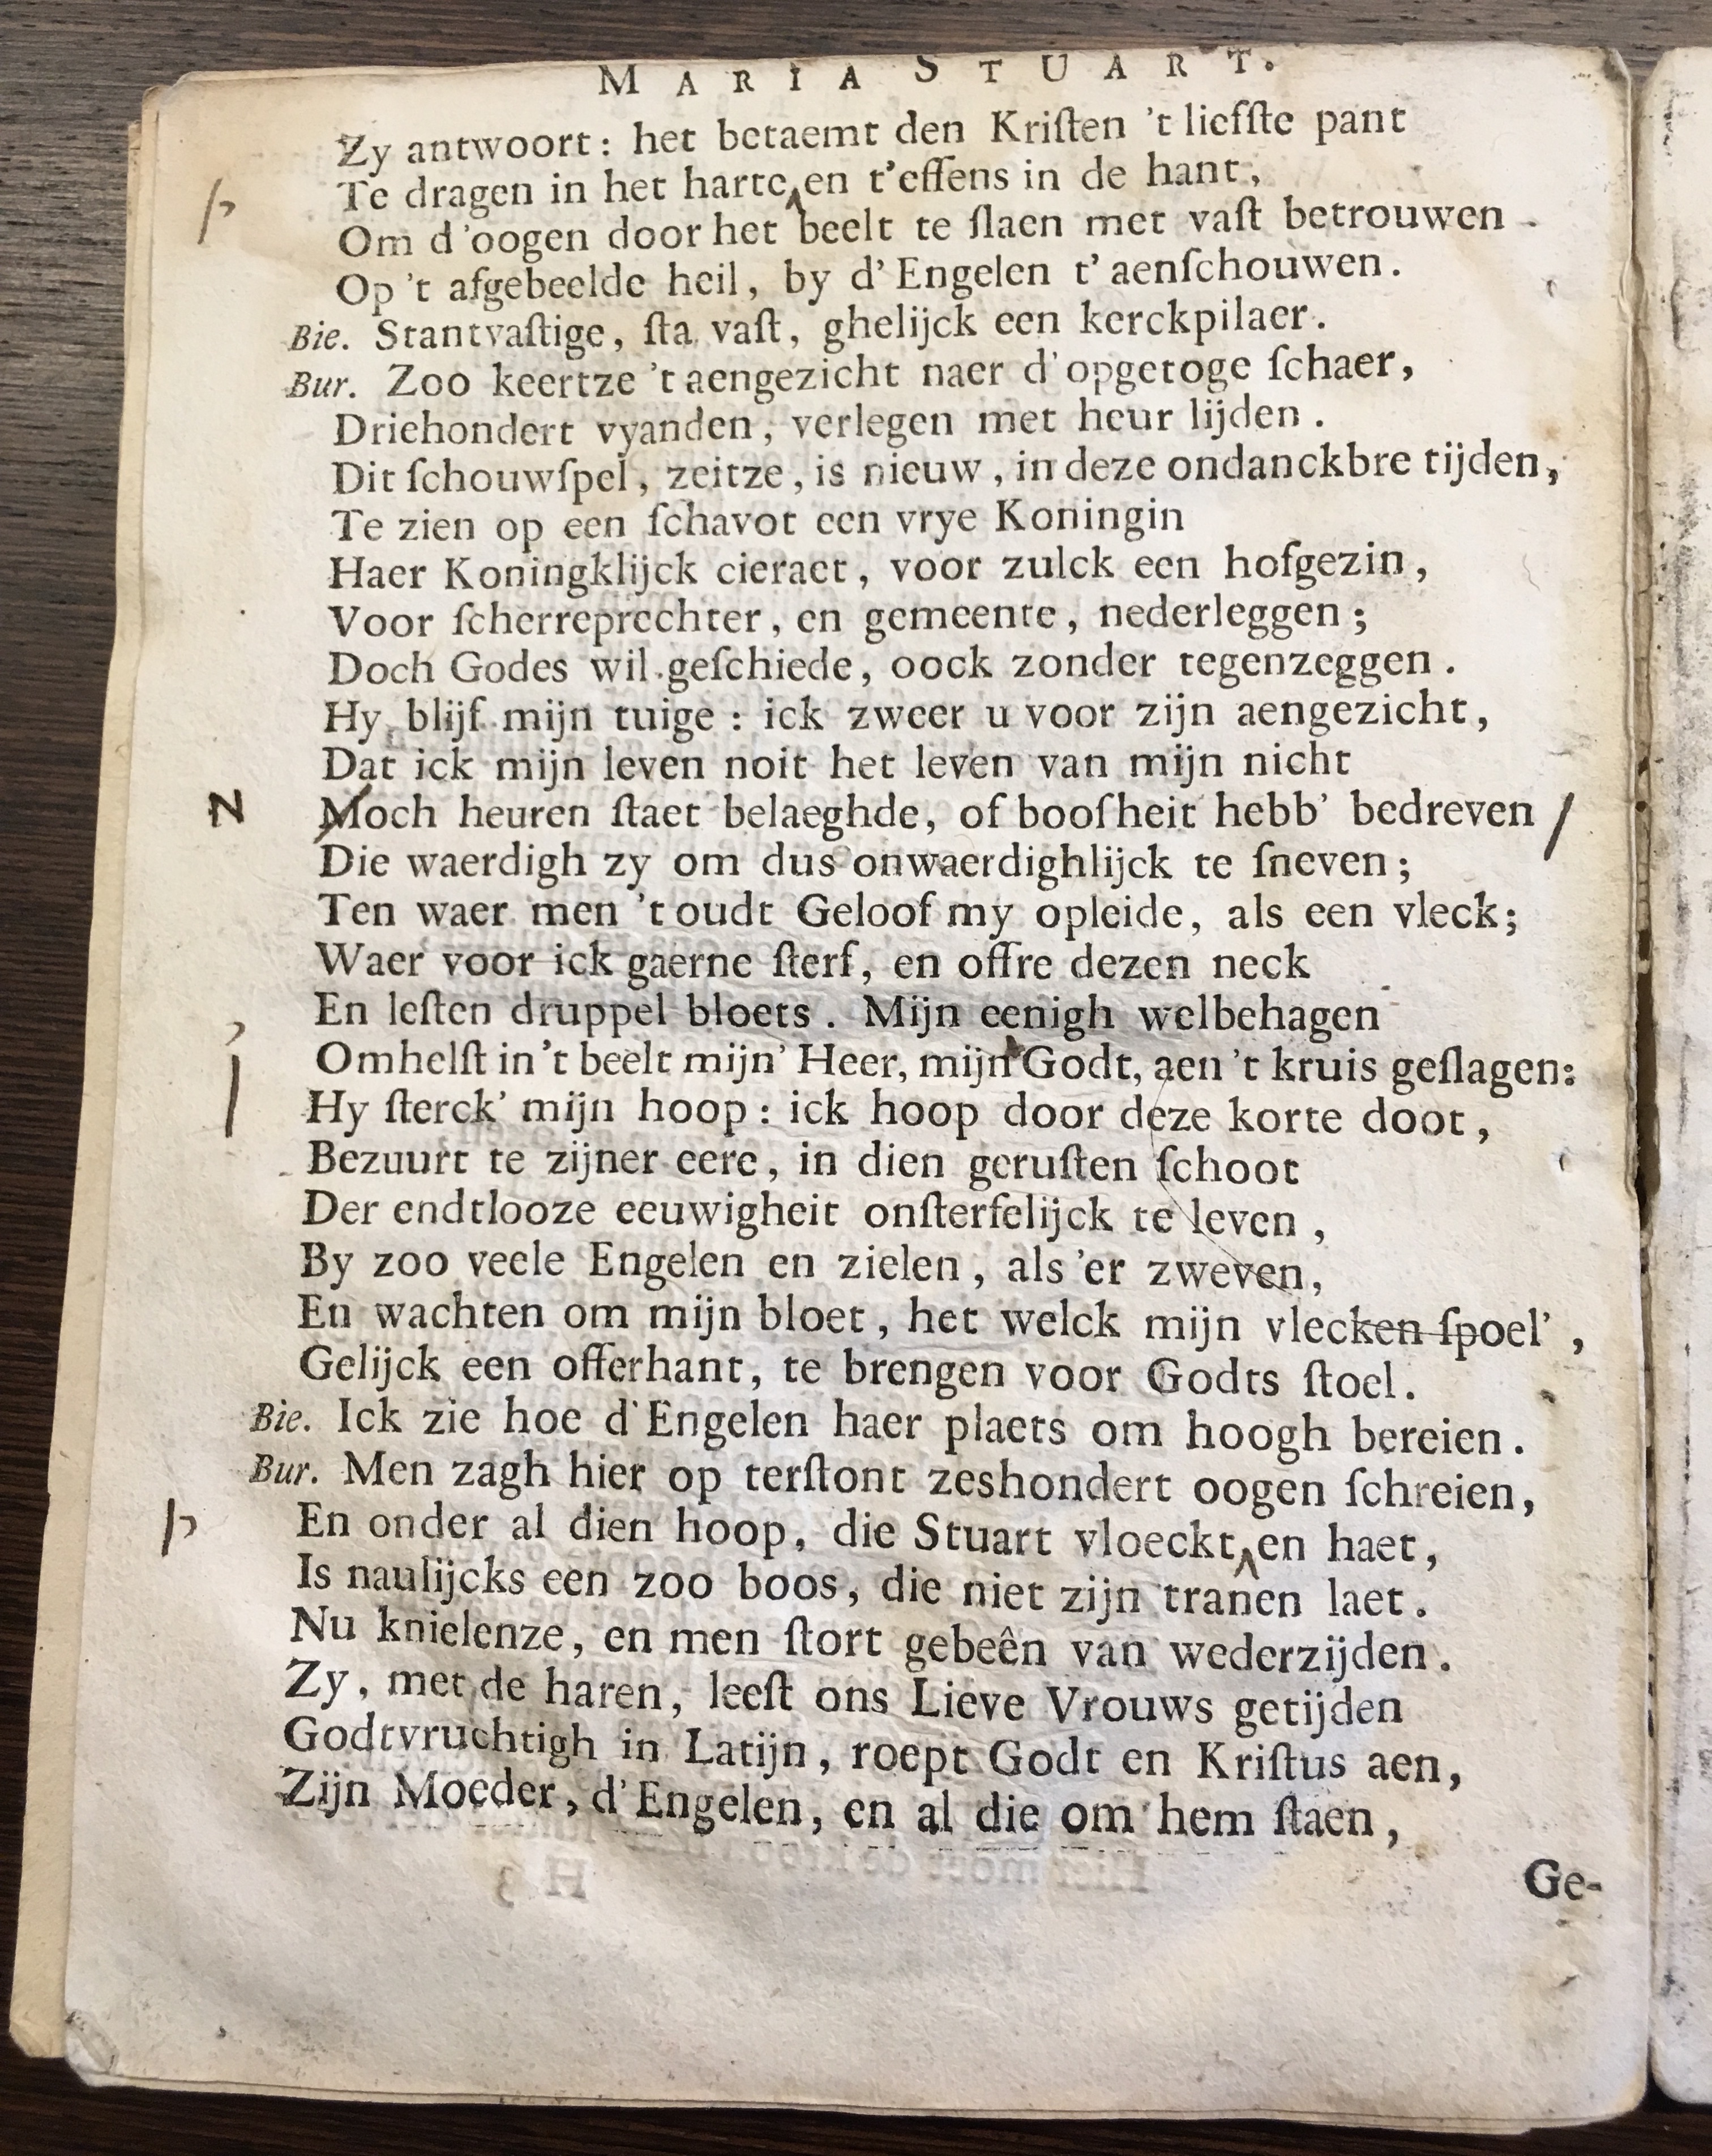 MARIA STUART.
Zy antwoort: het betaemt den Kriſten 't liefſte pant
Te dragen in het harte en t'effens in de hant,
Om d'oogen door het beelt te ſlaen met vaſt betrouwen
Op 't afgebeelde heil, by d'Engelen t'aenſchouwen.
Bie. Stantvaſtige, ſta vaſt, ghelijck een kerckpilaer.
Bur. Zoo keertze 't aengezicht naer d'opgetoge ſchaer,
Driehondert vyanden, verlegen met heur lijden.
Dit ſchouwſpel, zeitze, is nieuw, in deze ondanckbre tijden,
Te zien op een ſchavot een vrye Koningin
Haer Koningklijck cieraet, voor zulck een hofgezin,
Voor ſcherreprechter, en gemeente, nederleggen;
Doch Godes wil geſchiede, oock zonder tegenzeggen.
Hy blijf mijn tuige: ick zweer u voor zijn aengezicht,
Dat ick mijn leven noit het leven van mijn nicht
N Moch heuren ſtaet belaeghde, of boosheit hebb' bedreven /
Die waerdigh zy om dus onwaerdighlijck te ſneven;
Ten waer men 't oudt Geloof my opleide, als een vleck;
Waer voor ick gaerne ſterf, en offre dezen neck
En leſten druppel bloets. Mijn eenigh welbehagen
Omhelſt in 't beelt mijn' Heer, mijn Godt, aen 't kruis geſlagen:
Hy ſterck' mijn hoop: ick hoop door deze korte doot,
Bezuurt te zijner eere, in dien geruſten ſchoot
Der endtlooze eeuwigheit onſterfelijck te leven,
By zoo veele Engelen en zielen, als 'er zweven,
En wachten om mijn bloet, het welck mijn vlecken ſpoel',
Gelijck een offerhant, te brengen voor Godts ſtoel.
Bie. Ick zie hoe d'Engelen haer plaets om hoogh bereien.
Bur. Men zagh hier op terſtont zeshondert oogen ſchreien,
En onder al dien hoop, die Stuart vloeckt en haet,
Is naulijcks een zoo boos, die niet zijn tranen laet.
Nu knielenze, en men ſtort gebeên van wederzijden.
Zy, met de haren, leeſt ons Lieve Vrouws getijden
Godtvruchtigh in Latijn, roept Godt en Kriſtus aen,
Zijn Moeder, d'Engelen, en al die om hem ſtaen,
Ge-